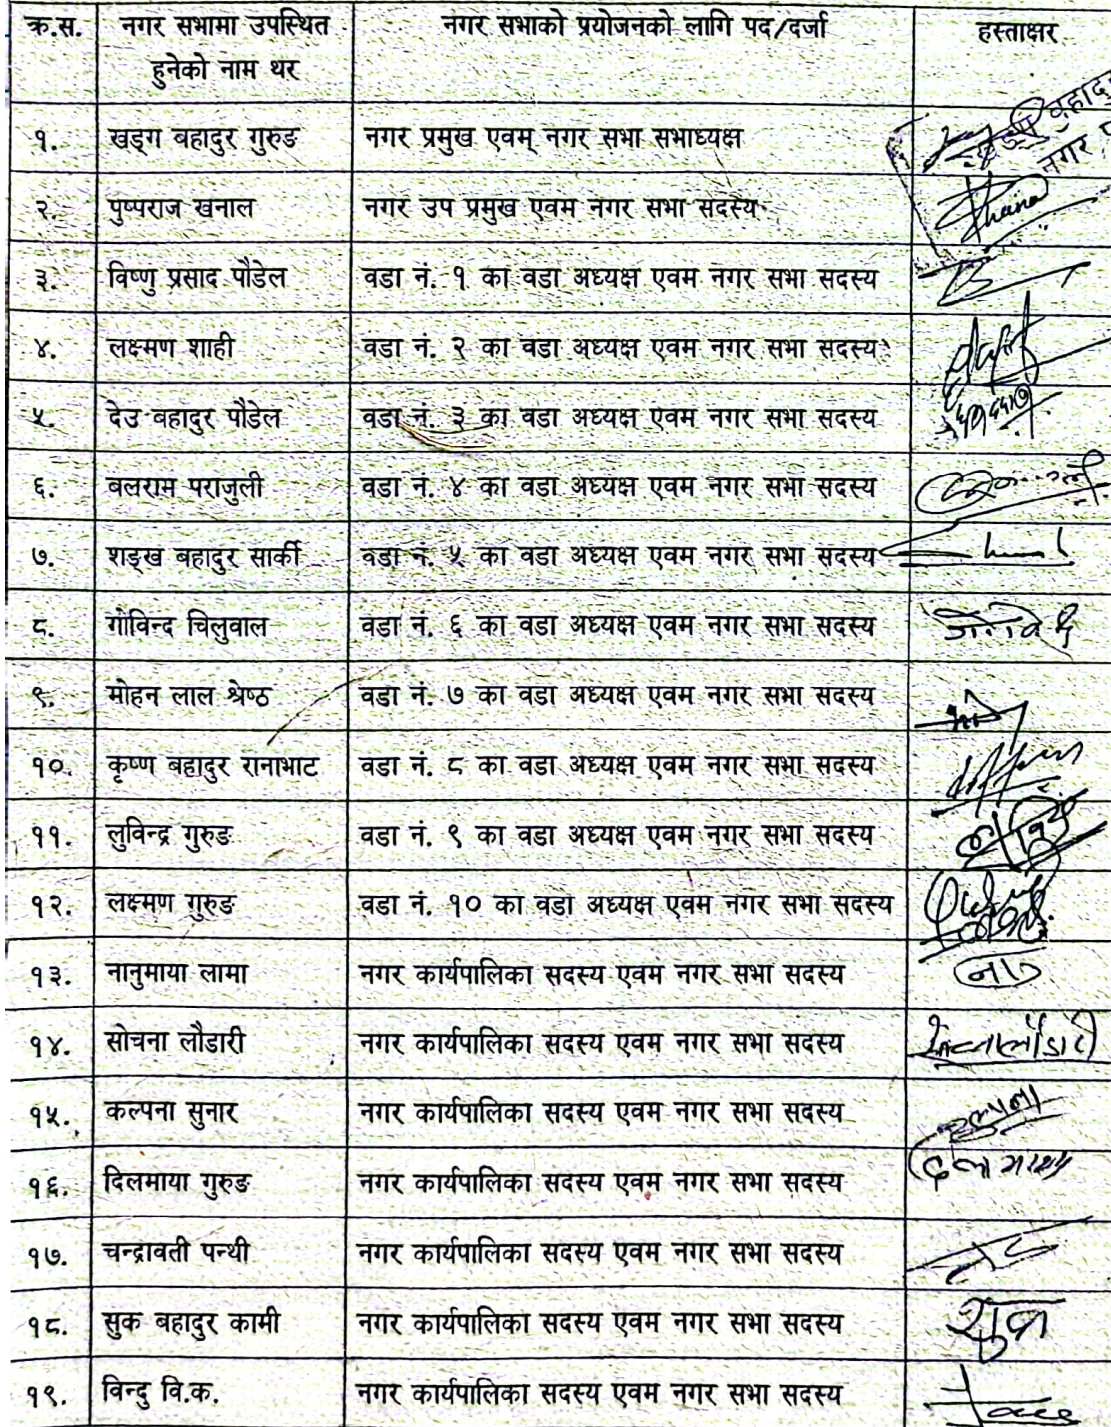 क्र.स. नगर सभामा उपस्थित नगर सभाको प्रयोजनको लागि पद/दर्जा हस्ताक्षर
हुनेको नाम थर
१. खड्ग बहादुर गुरुङ नगर प्रमुख एवम् नगर सभा सभाध्यक्ष
बहादु
नगर
२. पुष्पराज खनाल नगर उप प्रमुख एवम नगर सभा सदस्य
३. विष्णु प्रसाद पौडेल वडा नं. १ का वडा अध्यक्ष एवम नगर सभा सदस्य
४. लक्ष्मण शाही वडा नं. २ का वडा अध्यक्ष एवम नगर सभा सदस्य
५. देउ बहादुर पौडेल वडा नं. ३ का वडा अध्यक्ष एवम नगर सभा सदस्य
६. बलराम पराजुली वडा नं. ४ का वडा अध्यक्ष एवम नगर सभा सदस्य
७. शङ्ख बहादुर सार्की वडा नं. ५ का वडा अध्यक्ष एवम नगर सभा सदस्य
८. गोविन्द चिलुवाल वडा नं. ६ का वडा अध्यक्ष एवम नगर सभा सदस्य
९. मोहन लाल श्रेष्ठ वडा नं. ७ का वडा अध्यक्ष एवम नगर सभा सदस्य
१०. कृष्ण बहादुर रानाभाट वडा नं. ८ का वडा अध्यक्ष एवम नगर सभा सदस्य
११. लुविन्द्र गुरुङ वडा नं. ९ का वडा अध्यक्ष एवम नगर सभा सदस्य
१२. लक्ष्मण गुरुङ वडा नं. १० का वडा अध्यक्ष एवम नगर सभा सदस्य
१३. नानुमाया लामा नगर कार्यपालिका सदस्य एवम नगर सभा सदस्य
१४. सोचना लौडारी नगर कार्यपालिका सदस्य एवम नगर सभा सदस्य
१५. कल्पना सुनार नगर कार्यपालिका सदस्य एवम नगर सभा सदस्य कल्पना
१६. दिलमाया गुरुङ नगर कार्यपालिका सदस्य एवम नगर सभा सदस्य
१७. चन्द्रावती पन्थी नगर कार्यपालिका सदस्य एवम नगर सभा सदस्य
१८. सुक बहादुर कामी नगर कार्यपालिका सदस्य एवम नगर सभा सदस्य
१९. विन्दु वि.क. नगर कार्यपालिका सदस्य एवम नगर सभा सदस्य